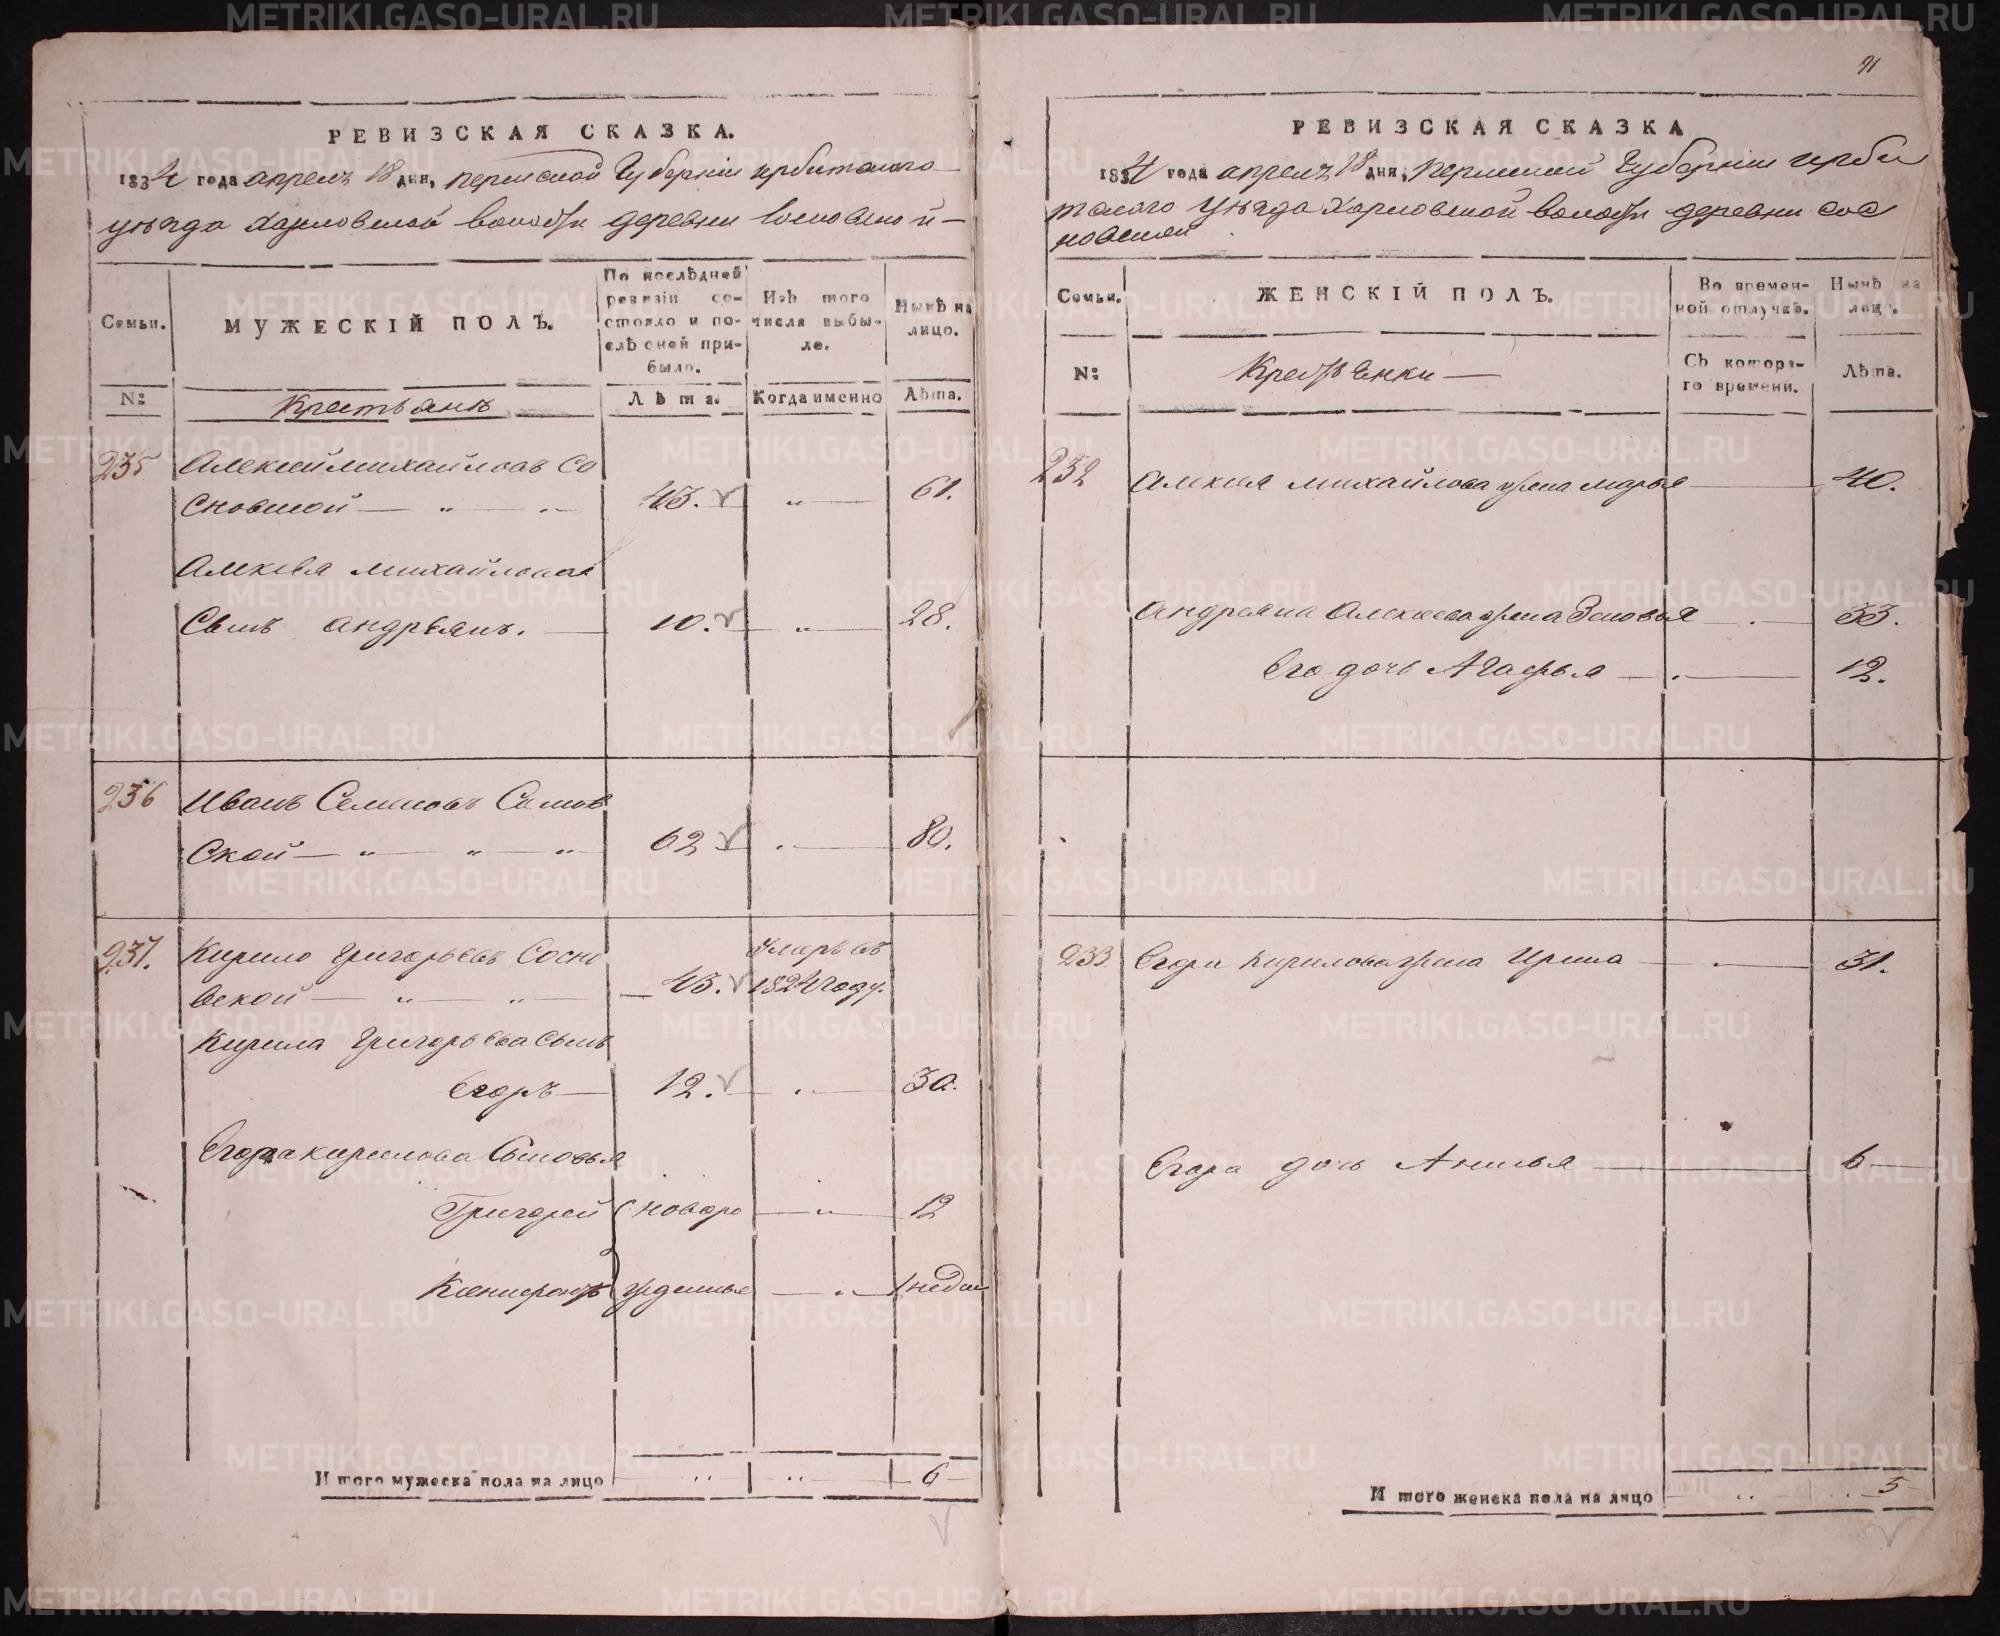 РЕВИЗСКАЯ СКАЗКА.
1834 года апреля 18 дня, Пермской Губернiи ирбитскаго
уѣзда Харловской волости деревни Сосновской
Семьи.
МУЖЕСКIЙ ПОЛЪ.
По послѣдней ревизiи состояло и послѣ оной прибыло.
Изъ того числа выбыле.
Нынѣ на лицо.
N:
Крестьянъ
Лѣта.
Когда именно
Лѣта.
235 Алексей михайловъ Со
сновской 43. 61.
Алексея михайлова
Сынъ андреянъ. 10. 28.
236 Иванъ Семеновъ Соснов
Ской 62 80.
237. Кирило Григорьевъ Сосно Умеръ въ
вской 45. 1824 году.
Кирила Григорьева Сынъ
Егоръ 12. 30.
Егора кирилова Сыновья
Григорей новоро 12
Ксенифонтъ жденные 1 недели
И того мужеска пола на лицо 6
91
РЕВИЗСКАЯ СКАЗКА
1834 года апреля 18 дня, Пермской Губернiи ирби
тского уѣзда Харловской волости деревни сос
новской
Семьи.
ЖЕНСКIЙ ПОЛЪ.
Во временной отлучкѣ.
Нынѣ на лицо.
N:
Крестьянки
Съ котораго времени.
Лѣта.
232 Алексея михайлова жена марья 40.
Андреяна Алексеева жена Зеновья 33.
Его дочь Агафья 12.
233 Егора Кирилова жена Ирина 31.
Егора дочь Анисья 6
И того женска пола на лицо 5
METRIKI.GASO-URAL.RU